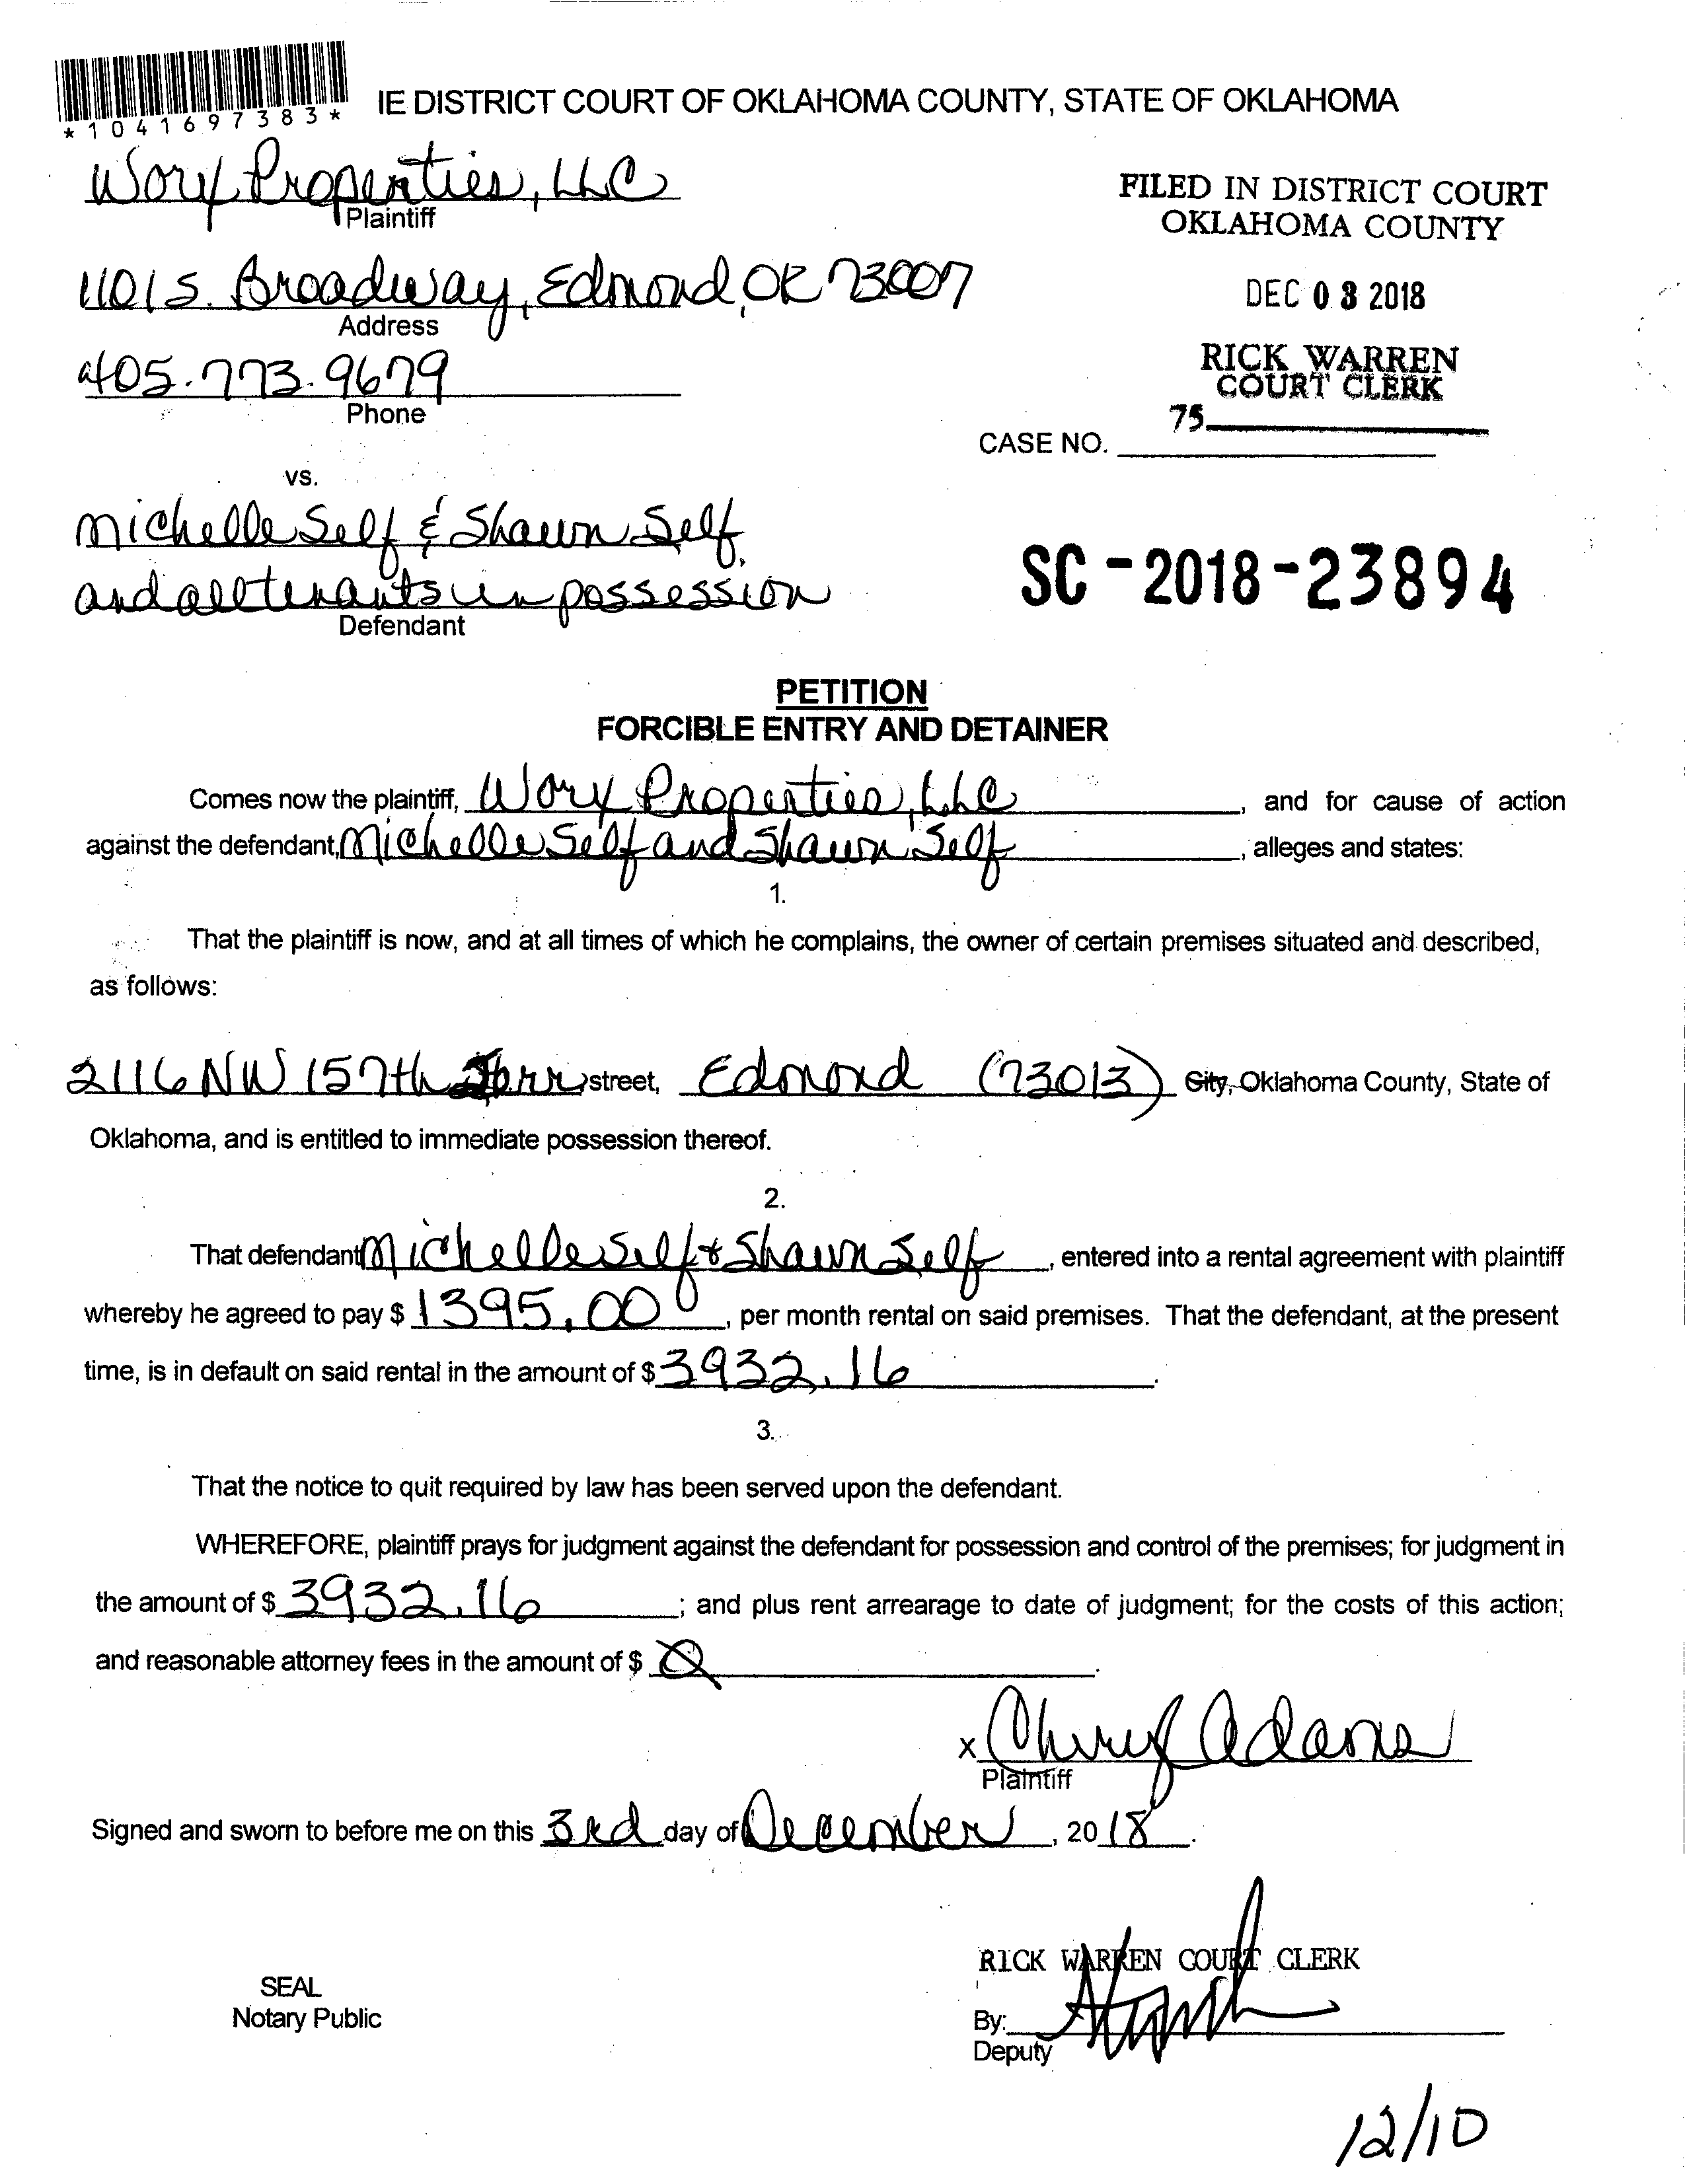 *1041697383*
IE DISTRICT COURT OF OKLAHOMA COUNTY, STATE OF OKLAHOMA
Worx Properties, LLC
Plaintiff
FILED IN DISTRICT COURT
OKLAHOMA COUNTY
1101 S. Broadway, Edmond, OK 73007
Address
DEC 03 2018
405.773.9679
Phone
RICK WARREN
COURT CLERK
75
CASE NO.
vs.
Michelle Self & Shawn Self,
and all tenants in possession
Defendant
SC-2018-23894
PETITION
FORCIBLE ENTRY AND DETAINER
Comes now the plaintiff, Worx Properties, LLC, and for cause of action
against the defendant, Michelle Self and Shawn Self, alleges and states:
1.
That the plaintiff is now, and at all times of which he complains, the owner of certain premises situated and described,
as follows:
2116 NW 157th Terr street, Edmond (73013) City, Oklahoma County, State of
Oklahoma, and is entitled to immediate possession thereof.
2.
That defendant Michelle Self & Shawn Self, entered into a rental agreement with plaintiff
whereby he agreed to pay $ 1395.00, per month rental on said premises. That the defendant, at the present
time, is in default on said rental in the amount of $ 3932.16.
3.
That the notice to quit required by law has been served upon the defendant.
WHEREFORE, plaintiff prays for judgment against the defendant for possession and control of the premises; for judgment in
the amount of $ 3932.16; and plus rent arrearage to date of judgment; for the costs of this action;
and reasonable attorney fees in the amount of $ 0.
x Cheryl Adams
Plaintiff
Signed and sworn to before me on this 3rd day of December, 2018.
RICK WARREN COURT CLERK
SEAL
Notary Public
By:
Deputy
12/10